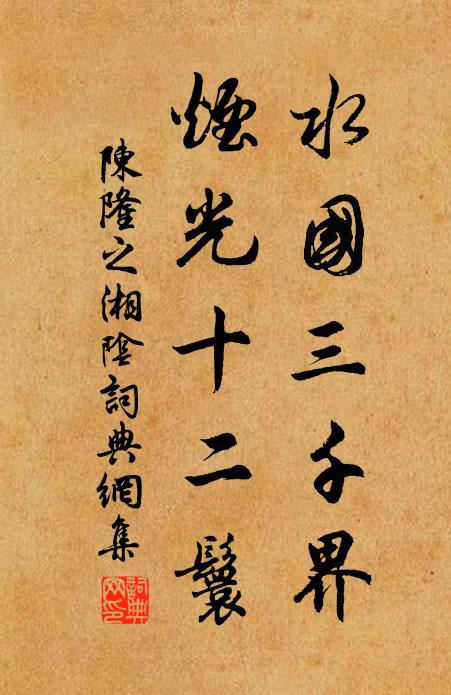 水國三千界
煙光十二鬟
陳隆之湘陰詞典網集
詞典網印